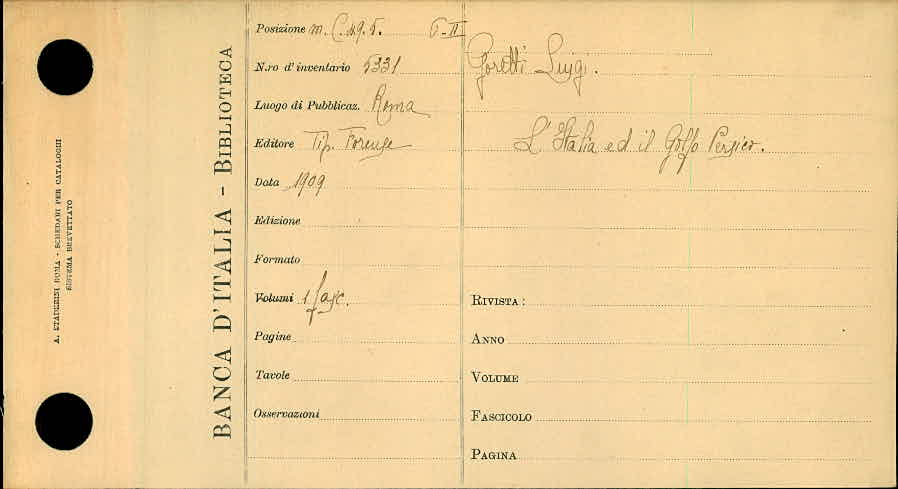 A. STADERINI ROMA - SCHEDARI PER CATALOGHI
SISTEMA BREVETTATO
BANCA D'ITALIA - BIBLIOTECA
Posizione m. C. n9. 5. 6-II
N.ro d'inventario 5331
Luogo di Pubblicaz. Roma
Editore Tip. Forense
Data 1909
Edizione
Formato
Volumi 1 fasc.
Pagine
Tavole
Osservazioni
Goretti Luigi.
L'Italia ed il Golfo Persico.
RIVISTA:
ANNO
VOLUME
FASCICOLO
PAGINA